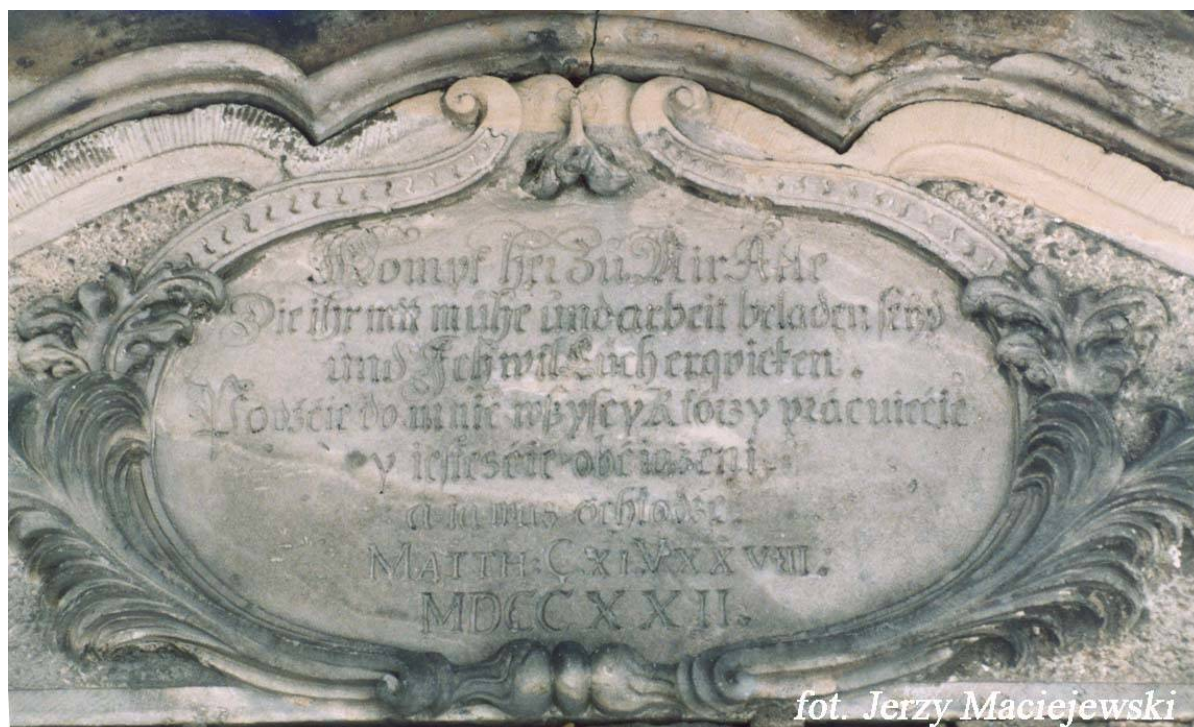 Kompt her zu Mir Alle
Die ihr mitt mühe und arbeit beladen seyd
und Ich wil Euch erqvicken.
Podźcie do mnie wszyscy Ktorzy prácuiećie
y iesteśćie obciążeni.
a ia was ochłodzę.
MATTH: C XI. V XXVIII.
MDCCXXII.
fot. Jerzy Maciejewski